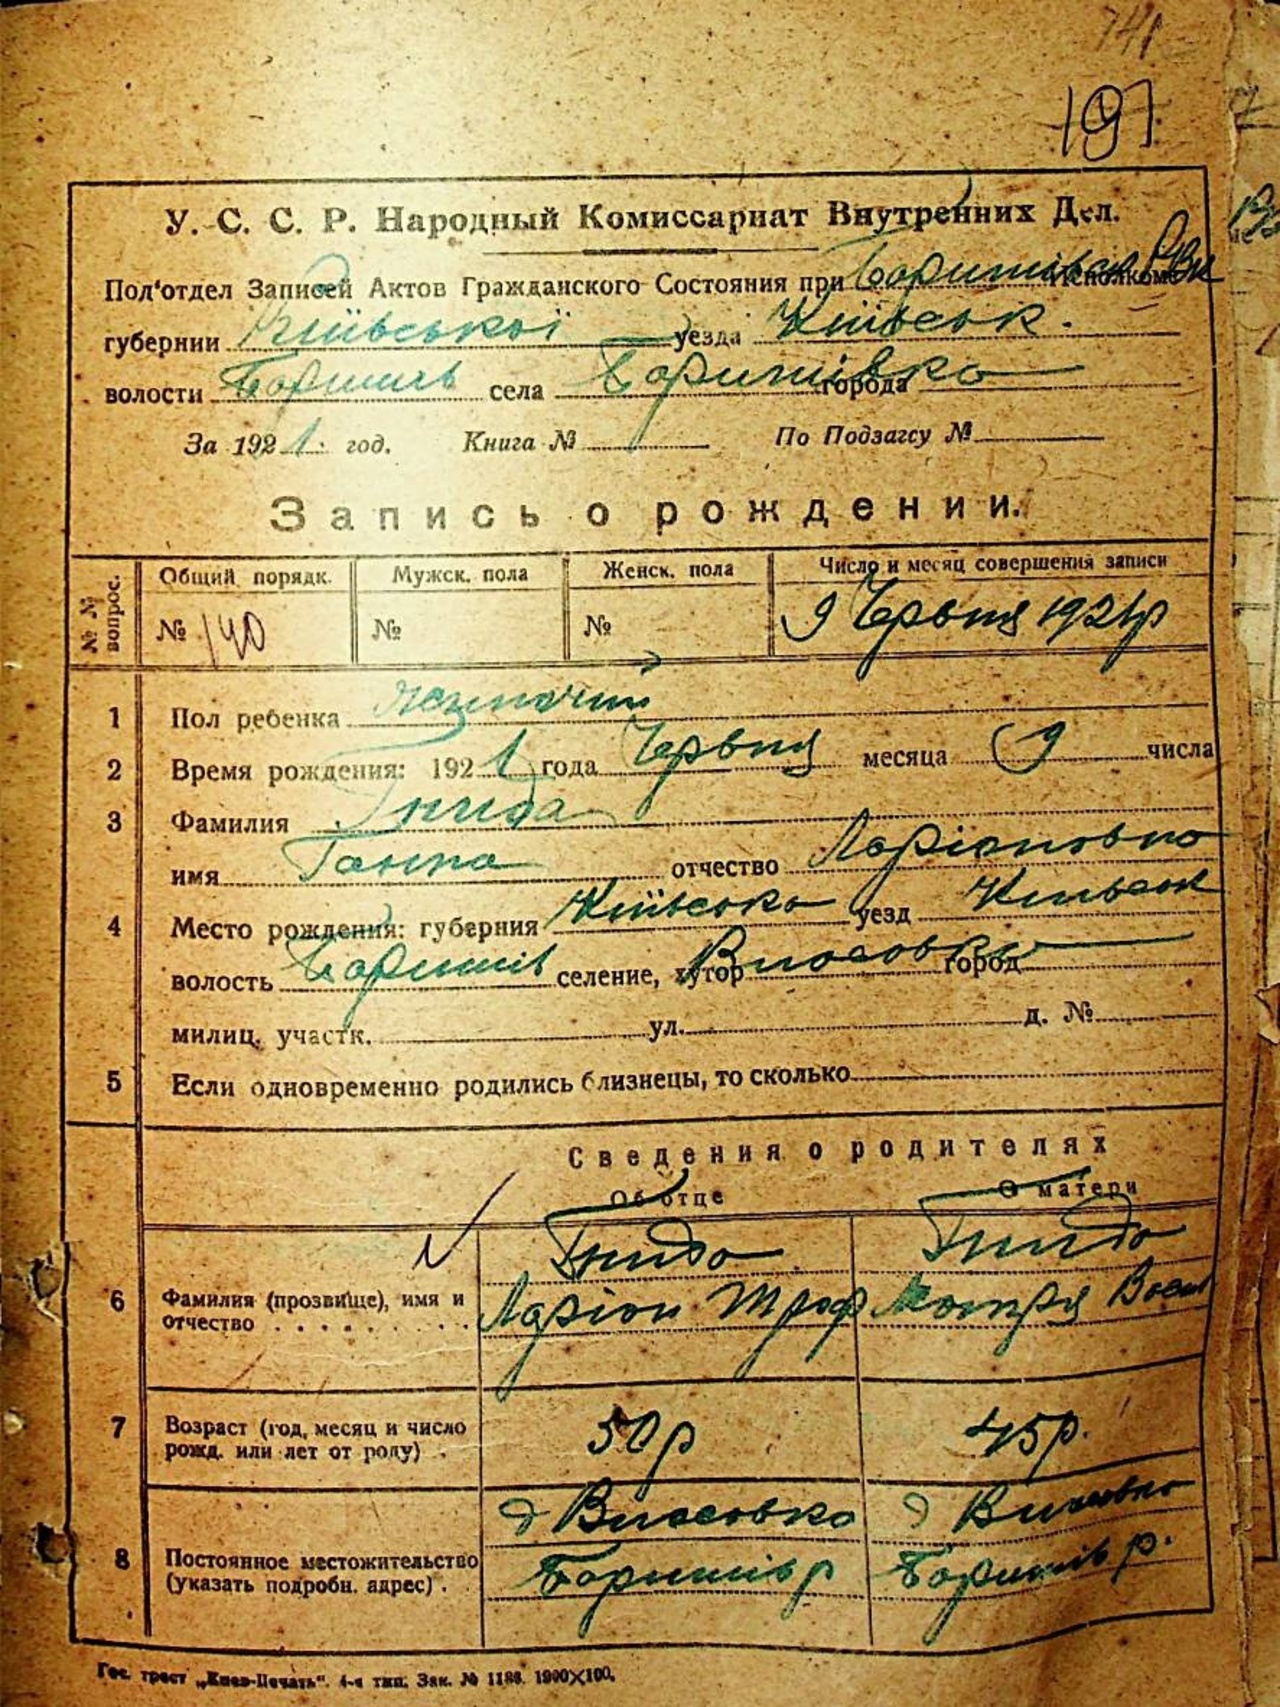 191
У. С. С. Р. Народный Комиссариат Внутренних Дел.
Пол'отдел Записей Актов Гражданского Состояния при Исполкоме
губернии Київської уезда Київськ.
волости села города
За 1921 год. Книга № По Подзагсу №
Запись о рождении.
№ № вопрос. Общий порядк. Мужск. пола Женск. пола Число и месяц совершения записи
№ 140 № № 9 Червня 1921 р
1 Пол ребенка
2 Время рождения: 1921 года Червня месяца 9 числа
3 Фамилия Гнида
имя Ганна отчество Ларіоновна
4 Место рождения: губерния Київська уезд Київськ
волость селение, хутор город
милиц. участк. ул. д. №
5 Если одновременно родились близнецы, то сколько
Сведения о родителях
Об отце О матери
Гнида Гнида
6 Фамилия (прозвище), имя и отчество Ларіон Троф Мотря Васил
7 Возраст (год, месяц и число рожд. или лет от роду) 50 р 45 р.
8 Постоянное местожительство (указать подробн. адрес)
Гос. трест „Киев-Печать". 4-я тип. Зак. № 1186. 1900×100.